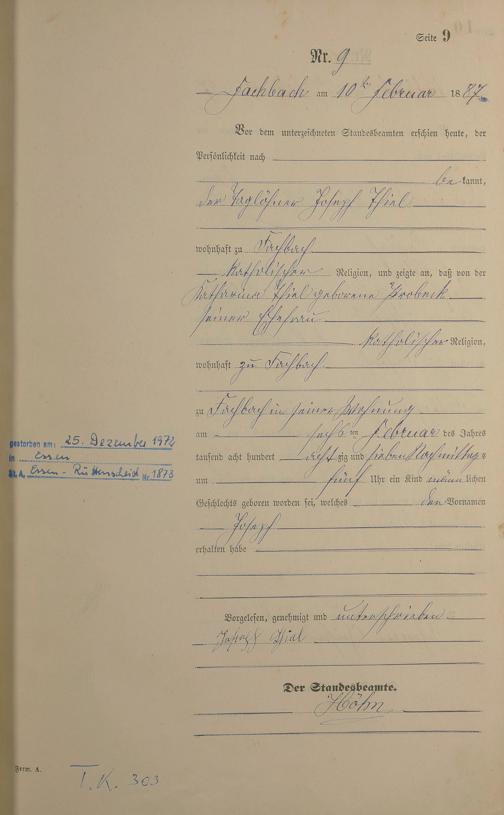 Seite 9
Nr. 9
Fachbach am 10ten Februar 1887
Vor dem unterzeichneten Standesbeamten erschien heute, der
Persönlichkeit nach
be kannt,
der Taglöhner Joseph Thiel
wohnhaft zu Fachbach
katholischer Religion, und zeigte an, daß von der
Katharina Thiel geborene Probeck
seiner Ehefrau
katholischer Religion,
wohnhaft zu Fachbach
zu Fachbach in seiner Wohnung
am sechsten Februar des Jahres
tausend acht hundert acht zig und sieben Nachmittags
um fünf Uhr ein Kind männlichen
Geschlechts geboren worden sei, welches den Vornamen
Joseph
erhalten habe
Vorgelesen, genehmigt und unterschrieben
Joseph Thiel
Der Standesbeamte.
Höhn
gestorben am: 25. Dezember 1972
in Essen
St. A. Essen - Rüttenscheid Nr. 1873
Form. A.
T. K. 303